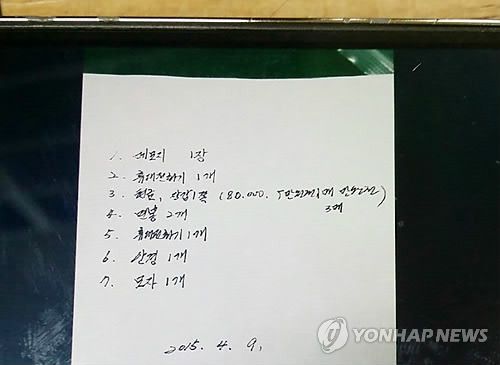 1. 메모지 1장
2. 휴대전화기 1개
3. 현금, 장갑1쪽 (80.000. 5만원권1매 만원권
3매)
4. 면봉 2개
5. 휴대전화기 1개
6. 안경 1개
7. 모자 1개
2015. 4. 9.
YONHAPNEWS